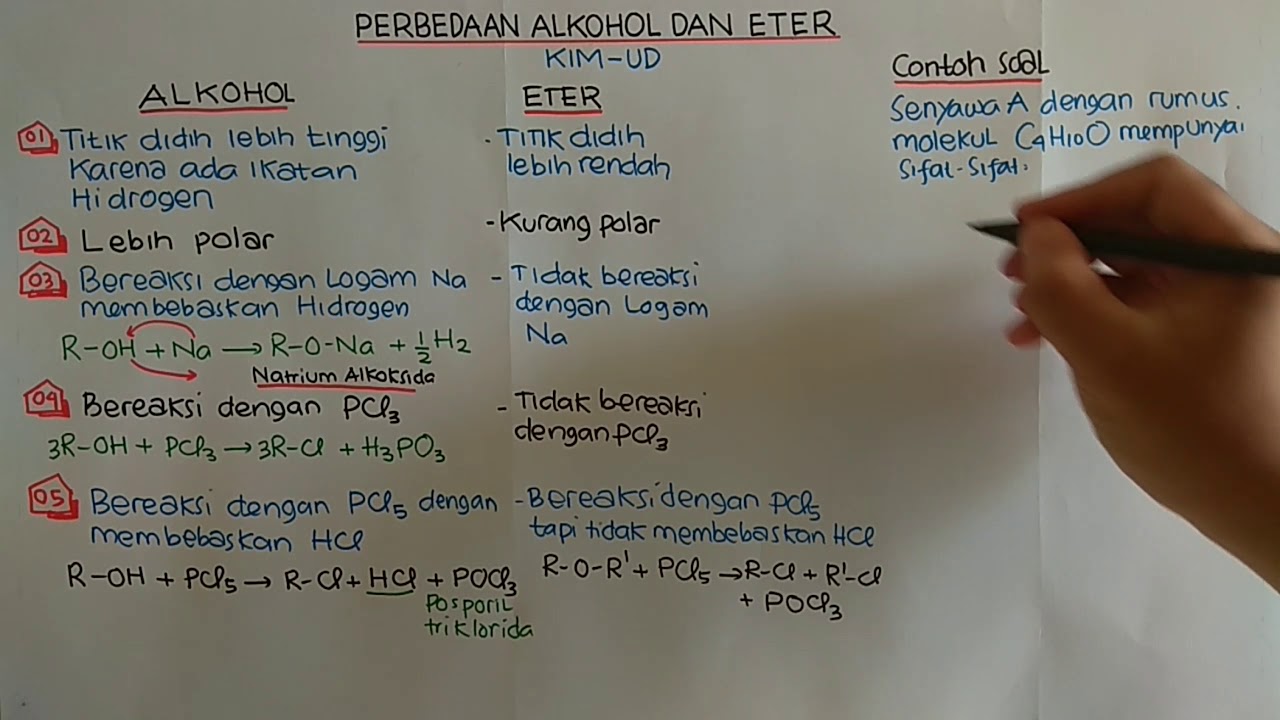 PERBEDAAN ALKOHOL DAN ETER
KIM-UD
ALKOHOL
01 Titik didih lebih tinggi
Karena ada ikatan
Hidrogen
02 Lebih polar
03 Bereaksi dengan Logam Na
membebaskan Hidrogen
R-OH + Na → R-O-Na + ½H₂
Natrium Alkoksida
04 Bereaksi dengan PCl₃
3R-OH + PCl₃ → 3R-Cl + H₃PO₃
05 Bereaksi dengan PCl₅ dengan
membebaskan HCl
R-OH + PCl₅ → R-Cl + HCl + POCl₃
Posporil
triklorida
ETER
- Titik didih
lebih rendah
- Kurang polar
- Tidak bereaksi
dengan Logam
Na
- Tidak bereaksi
dengan PCl₃
- Bereaksi dengan PCl₅
tapi tidak membebaskan HCl
R-O-R' + PCl₅ → R-Cl + R'-Cl
+ POCl₃
Contoh soal
Senyawa A dengan rumus
molekul C₄H₁₀O mempunyai
Sifat-Sifat: